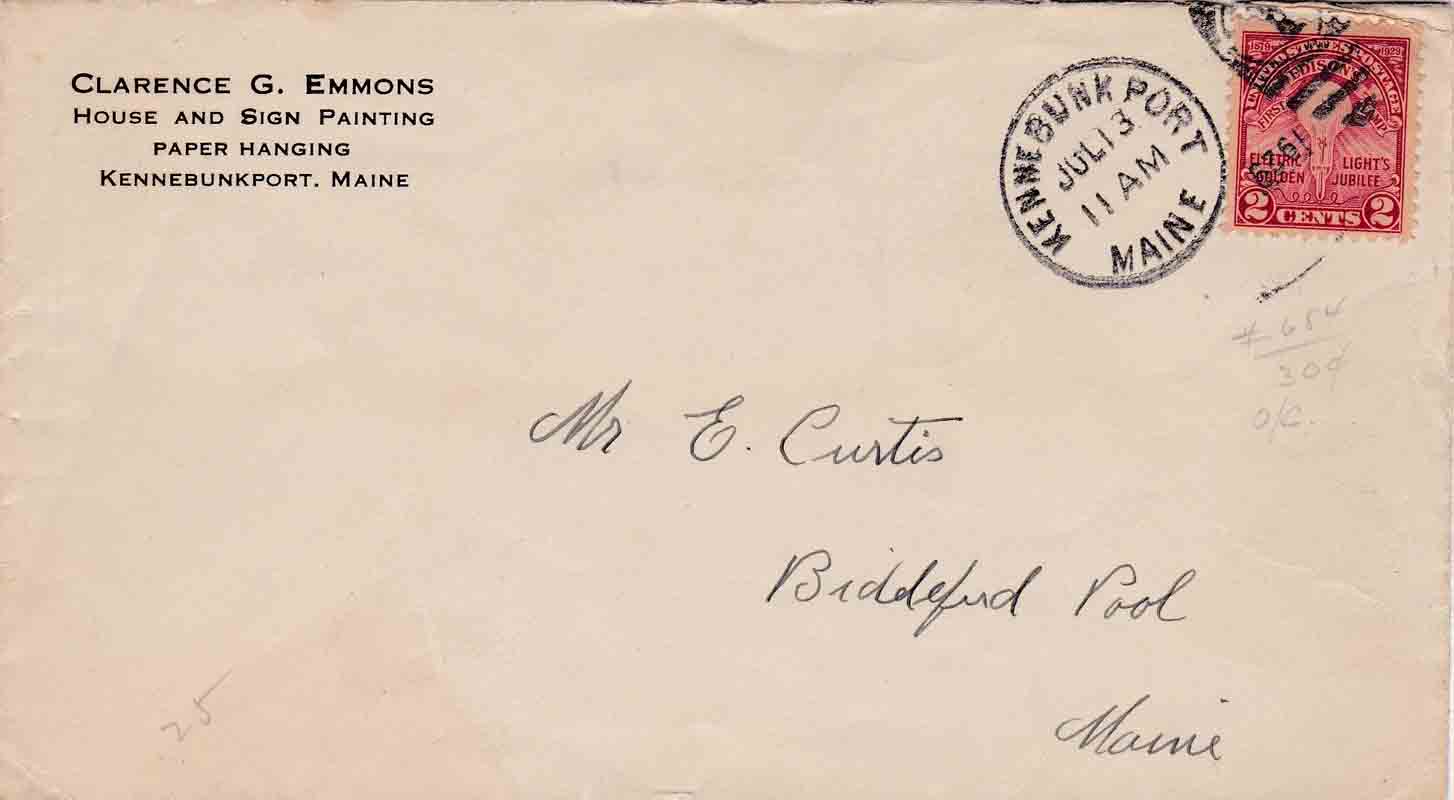 CLARENCE G. EMMONS
HOUSE AND SIGN PAINTING
PAPER HANGING
KENNEBUNKPORT. MAINE
KENNEBUNKPORT
JUL 13
11 AM
MAINE
1879 1929
UNITED STATES POSTAGE
EDISON'S
FIRST LAMP
ELECTRIC LIGHT'S
GOLDEN JUBILEE
2 CENTS 2
# 654
30¢
O/C.
Mr E. Curtis
Biddeford Pool
Maine
25